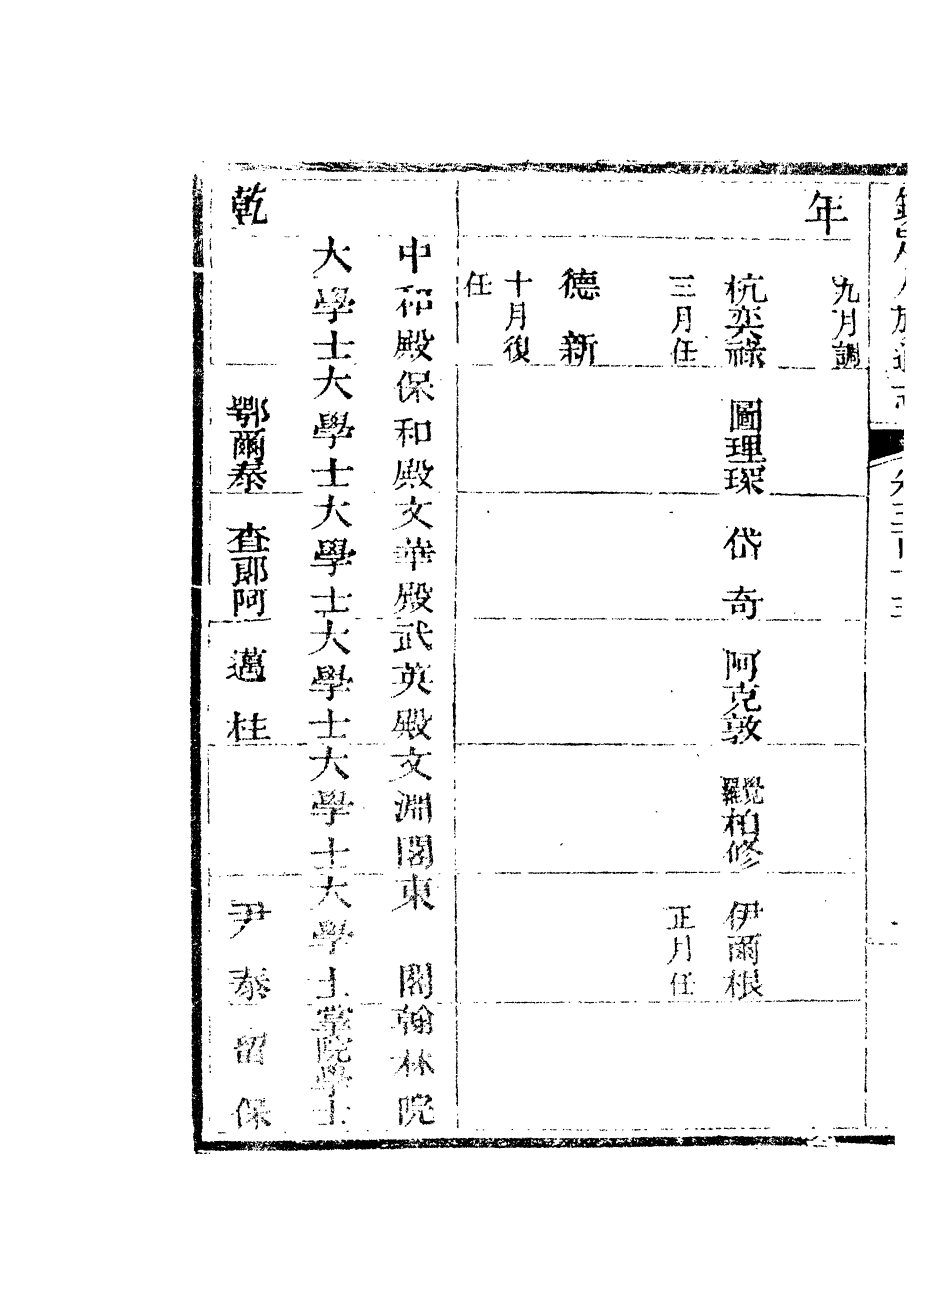 欽定八旗通志
年
九月調
杭奕祿 圖理琛 岱奇 阿克敦 覺羅柏修 伊爾根
三月任 正月任
德新
十月復
任
中和殿 保和殿 文華殿 武英殿 文淵閣 東閣 翰林院
大學士 大學士 大學士 大學士 大學士 大學士 掌院學士
乾 鄂爾泰 查郎阿 邁柱 尹泰 留保